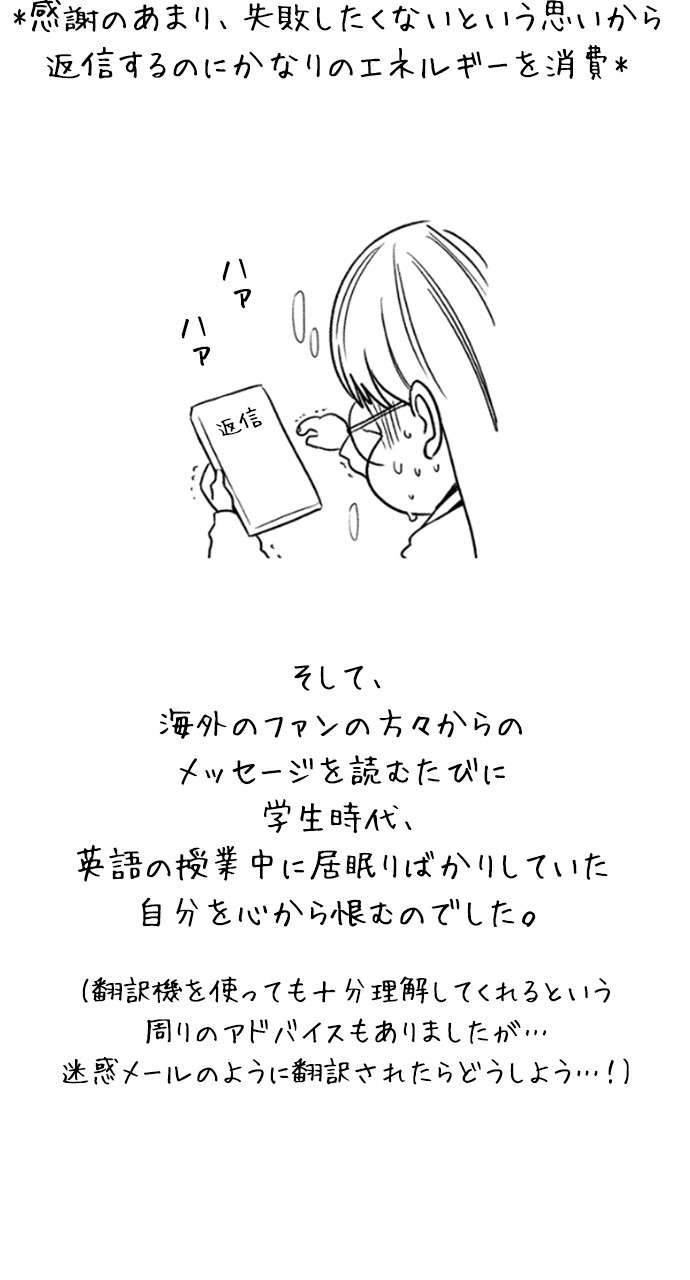 *感謝のあまり、失敗したくないという思いから
返信するのにかなりのエネルギーを消費*
ハァ
ハァ
返信
そして、
海外のファンの方々からの
メッセージを読むたびに
学生時代、
英語の授業中に居眠りばかりしていた
自分を心から恨むのでした。
(翻訳機を使っても十分理解してくれるという
周りのアドバイスもありましたが…
迷惑メールのように翻訳されたらどうしよう…！)